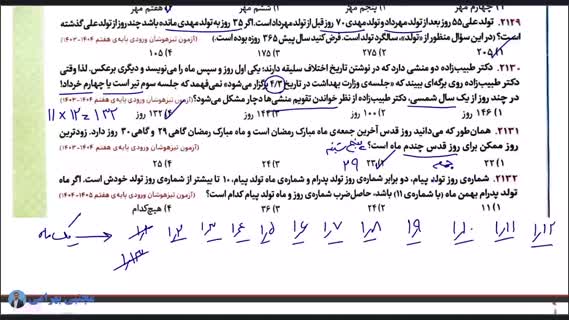 ۱) چهارم مهر ۲) پنجم مهر ۳) ششم مهر ۴) هفتم مهر
۲۱۲۹. تولد علی ۵۵ روز بعد از تولد مهرداد و تولد مهدی ۷۰ روز قبل از تولد مهرداد است. اگر ۳۵ روز به تولد مهدی مانده باشد چند روز از تولد علی گذشته
است؟ (در این سؤال منظور از «تولد»، سالگرد تولد است. فرض کنید سال پیش ۳۶۵ روزه بوده است.) (آزمون تیزهوشان ورودی پایه‌ی هفتم ۱۴۰۴-۱۴۰۳)
۱) ۲۰۵ ۲) ۲۷۵ ۳) ۱۷۵ ۴) ۱۰۵
۲۱۳۰. دکتر طبیب‌زاده دو منشی دارد که در نوشتن تاریخ اختلاف سلیقه دارند؛ یکی اول روز و سپس ماه را می‌نویسد و دیگری برعکس. لذا وقتی
دکتر طبیب‌زاده روی برگه‌ای ببیند که «جلسه‌ی وزارت بهداشت در تاریخ ۴/۳ برگزار می‌شود» نمی‌فهمد که جلسه سوم تیر است یا چهارم خرداد!
در چند روز از یک سال شمسی، دکتر طبیب‌زاده از نظر خواندن تقویم منشی‌ها دچار مشکل می‌شود؟ (آزمون تیزهوشان ورودی پایه‌ی هفتم ۱۴۰۴-۱۴۰۳)
۱) ۱۴۶ روز ۲) ۱۰۰ روز ۳) ۱۴۴ روز ۴) ۱۳۲ روز ۱۱ × ۱۲ = ۱۳۲
۲۱۳۱. همان‌طور که می‌دانید روز قدس آخرین جمعه‌ی ماه مبارک رمضان است و ماه مبارک رمضان گاهی ۲۹ و گاهی ۳۰ روز دارد. زودترین
روز ممکن برای روز قدس چندم ماه است؟ (آزمون تیزهوشان ورودی پایه‌ی هفتم ۱۴۰۴-۱۴۰۳)
۱) ۲۲ جمعه ۲) ۲۳ ۲۹ ۳) ۲۴ ۴) ۲۵
۲۱۳۲. شماره‌ی روز تولد پیام، دو برابر شماره‌ی روز تولد پدرام و شماره‌ی ماه تولد پیام، ۱۰ تا بیشتر از شماره‌ی روز تولد خودش است. اگر ماه
تولد پدرام بهمن ماه (با شماره‌ی ۱۱) باشد، حاصل‌ضرب شماره‌ی روز و ماه تولد پیام کدام است؟ (آزمون تیزهوشان ورودی پایه‌ی هفتم ۱۴۰۵-۱۴۰۴)
۱) ۱۱ ۲) ۲۴ ۳) ۳۶ ۴) هیچ‌کدام
یک ماه → ۱/۱ ۱/۲ ۱/۳ ۱/۴ ۱/۵ ۱/۶ ۱/۷ ۱/۸ ۱/۹ ۱/۱۰ ۱/۱۱ ۱/۱۲
۱/۱۳
مجتبی بهرامی